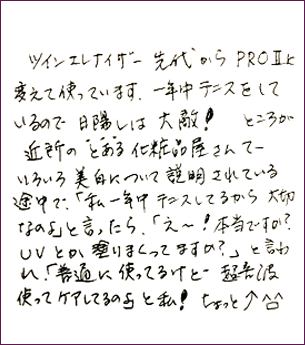 ツインエレナイザー 先代から PROⅡと
変えて使っています。一年中テニスをして
いるので 日陽しは 大敵！ ところが
近所の とある 化粧品屋さんで
いろいろ 美白について 説明されている
途中で、「私一年中テニスしてるから 大切
なのよ」と言ったら、「え〜！本当ですか？
UVとか 塗りまくってますか？」と言わ
れ、「普通に 使ってるけど 超音波
使ってケアしてるのよ」と私！ ちょっと↑^^